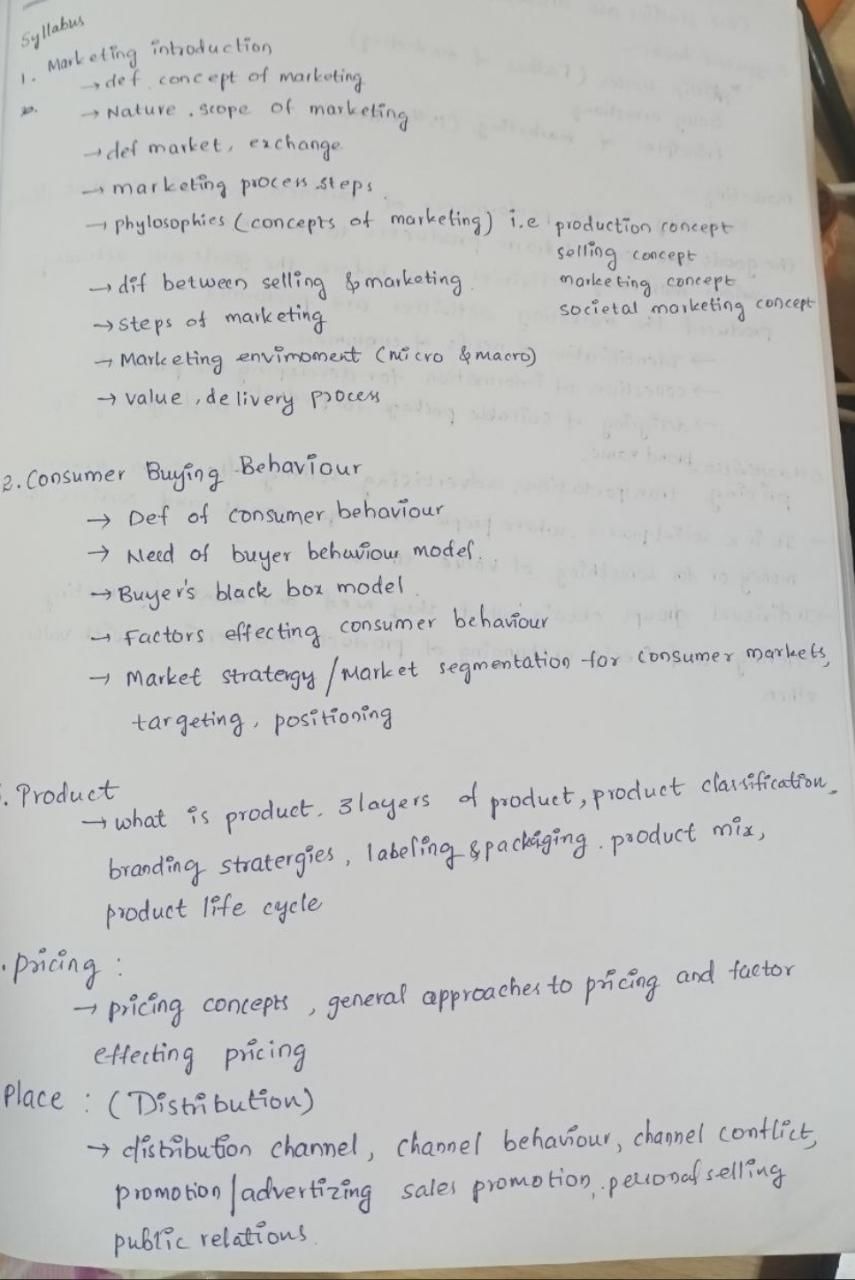 Syllabus
1. Marketing introduction
→ def concept of marketing
→ Nature, scope of marketing
→ def market, exchange
→ marketing process steps
→ phylosophies (concepts of marketing) i.e production concept
selling concept
→ dif between selling & marketing
marketing concept
→ steps of marketing
societal marketing concept
→ Marketing envimoment (micro & macro)
→ value, delivery process
2. Consumer Buying Behaviour
→ Def of consumer behaviour
→ Need of buyer behaviour model.
→ Buyer's black box model
→ Factors effecting consumer behaviour
→ Market stratergy / Market segmentation for consumer markets,
targeting, positioning
. Product
→ what is product. 3 layers of product, product classification,
branding stratergies, labeling & packaging. product mix,
product life cycle
. pricing :
→ pricing concepts, general approaches to pricing and factor
effecting pricing
Place : (Distribution)
→ distribution channel, channel behaviour, channel conflict,
promotion / advertizing sales promotion, personal selling
public relations.